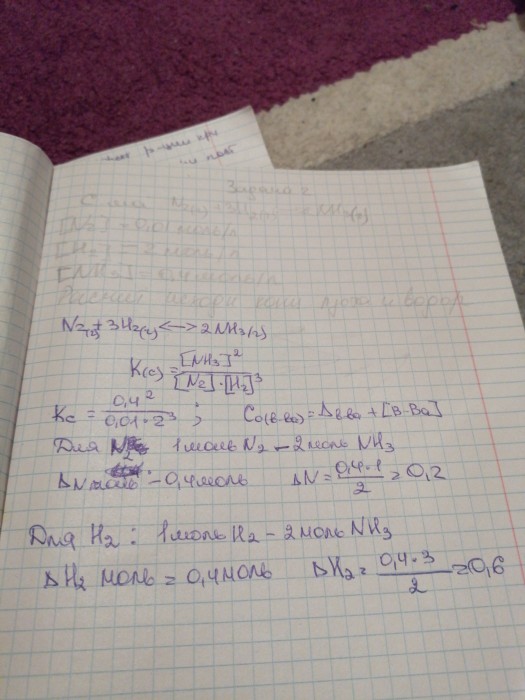 Задача 2
[N2] = 0,01 моль/л
[H2] = 2 моль/л
[NH3] = 0,4 моль/л
N2(г) + 3H2(г) <-> 2NH3(г)
K(c) = [NH3]² / [N2]·[H2]³
Kc = 0,4² / 0,01·2³ ; C0(в-ва) = Δв-ва + [в-ва]
Для N2 1 моль N2 – 2 моль NH3
ΔN моль – 0,4 моль ΔN = 0,4·1 / 2 = 0,2
Для H2 : 1 моль H2 – 2 моль NH3
ΔH2 моль = 0,4 моль ΔH2 = 0,4·3 / 2 = 0,6